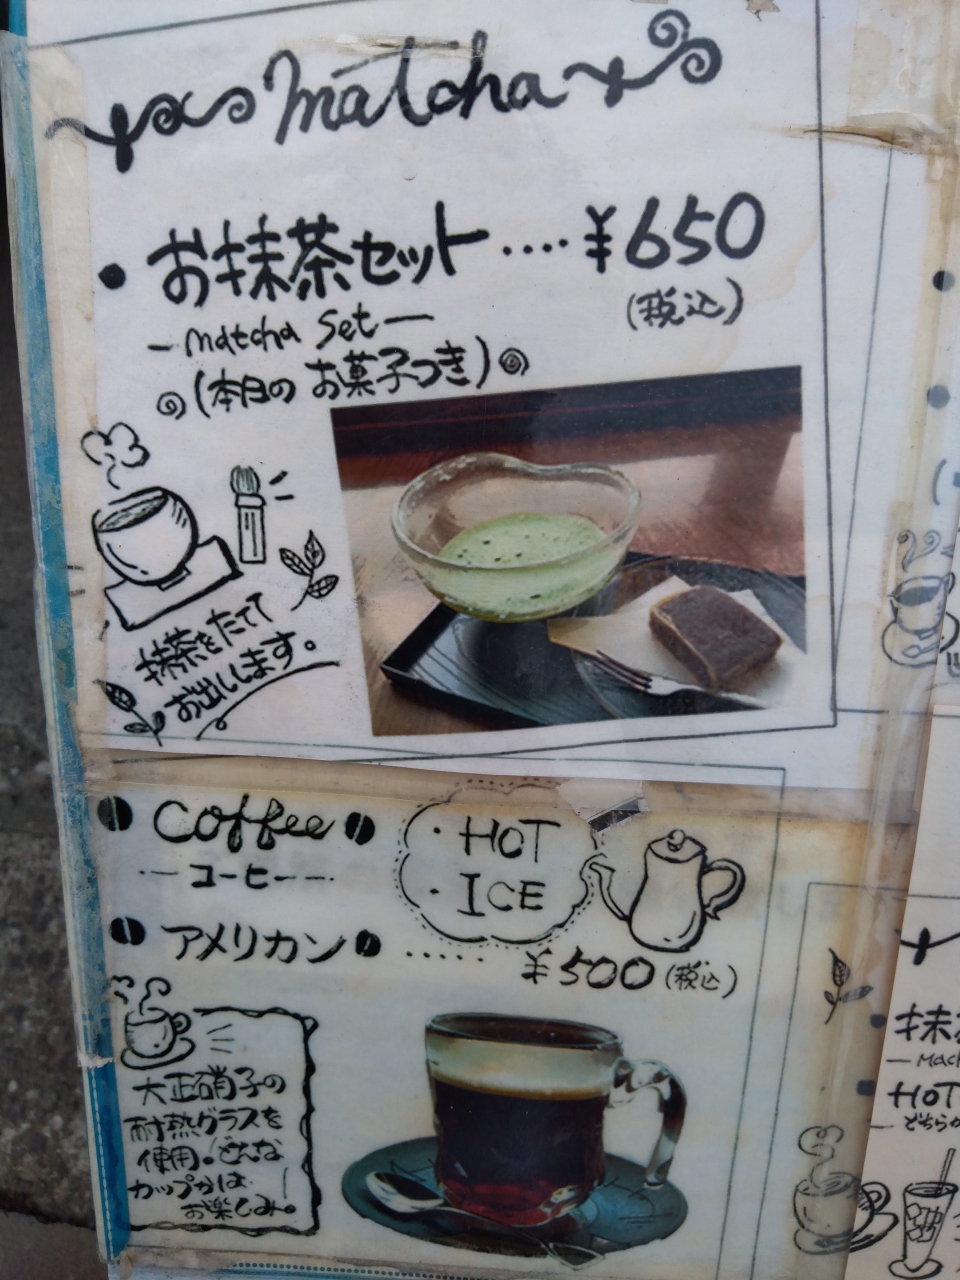 Matcha
・お抹茶セット‥‥¥650
(税込)
-matcha Set-
(本日の お菓子つき)
抹茶をたてて
お出しします。
Coffee
-コーヒー-
・HOT
・ICE
アメリカン ‥‥‥ ¥500(税込)
大正硝子の
耐熱グラスを
使用。どんな
カップかは
お楽しみ。!
抹
HOT
どちらか